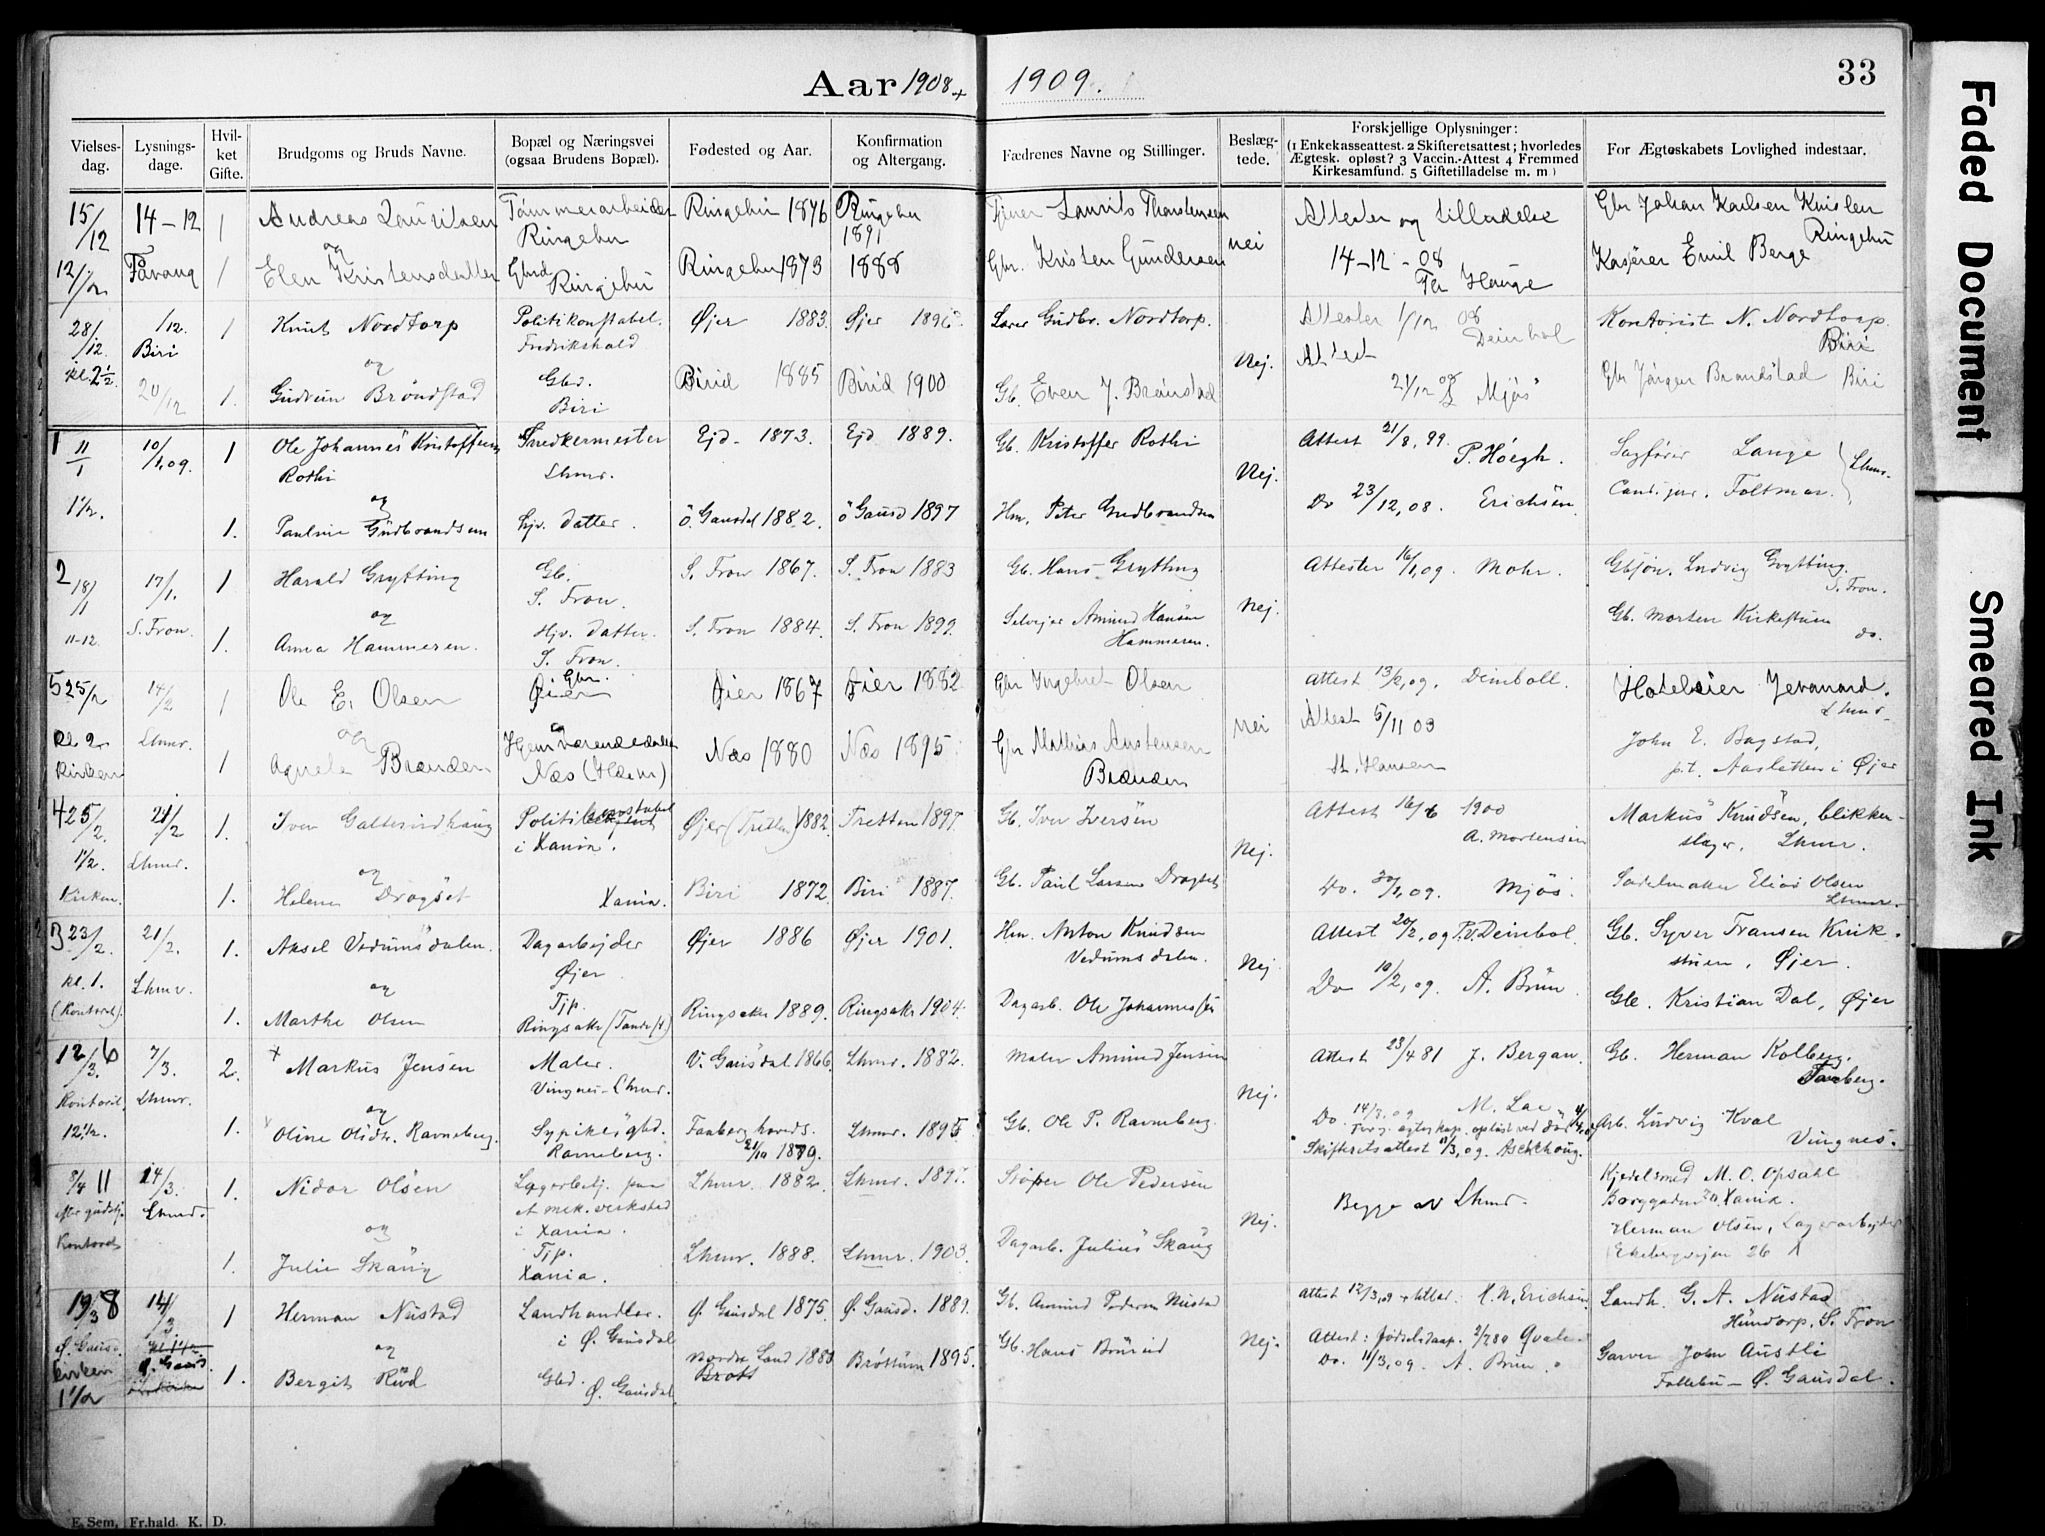 Aar 1908 + 1909.
33
Vielses-dag.
Lysnings-dage.
Hvil-ket Gifte.
Brudgoms og Bruds Navne.
Bopæl og Næringsvei (ogsaa Brudens Bopæl).
Fødested og Aar.
Konfirmation og Altergang.
Fædrenes Navne og Stillinger.
Beslæg-tede.
Forskjellige Oplysninger:
(1 Enkekasseattest. 2 Skifteretsattest; hvorledes
Ægtesk. opløst? 3 Vaccin.-Attest 4 Fremmed
Kirkesamfund. 5 Giftetilladelse m. m)
For Ægteskabets Lovlighed indestaar.
15/12 14-12 1 Andreas Lauritsen Tømmerarbeider Ringebu 1876 Ringebu Laurits Thorstensen Attester og tilladelse Gbr Johan Karlsen
og Ringebu 1891 nei 14-12-08 Ringebu
12 1/2 Fåvang 1 Elen Kristensdatter Gbrd Ringebu Ringebu 1873 1888 Gbr. Kristen Gundersen Hauge Kasserer Emil Berge
28/12 1/12. 1 Knut Nordtorp Politikonstabel. Øjer 1883. Øjer Lærer Gudbr. Nordtorp. Attester 1/12 08 Kontorist N. Nordtorp.
Biri Fredrikshald Deinbol Biri
kl. 2½ og Nej. Attest
20/12 1. Gudrun Brøndstad Gbd. Biri Birid 1885 Birid 1900 Gb. Even J. Brønstad 21/12 08 Mjøs Gbr Jørgen Brandstad Biri
1 11/1 10/1,09. 1 Ole Johannes Kristoffersen Snedkermester Ejd. 1873. Ejd 1889. Gb. Kristoffer Rothi Attest 21/8, 99. Sagfører Lange
Rothi Lhmr. Nej. P. Høegh. Cand. jur. Foltmar. Lhmr.
1½. og
1. Pauline Gudbrandsen Hjv. datter. Ö. Gausdal 1882. Ö Gausd 1897 Hm. Peter Gudbrandsen Do 23/12,08. Erichsen.
2 18/1 17/1. 1 Harald Grytting Gb. S. Fron. S. Fron 1867. S. Fron 1883 Gb. Hans Grytting Attester 16/1,09. Mohr. Gbsjøn. Ludvig Grytting.
og Nej. S. Fron.
11-12 S. Fron. 1. Anna Hammeren. Hjv. datter. S. Fron. S. Fron 1884. S. Fron 1899. Selvejer Amund Hansen Hammeren. Gb. Morten Kirkestuen do.
5 25/2 14/2 1 Ole E. Olsen Gbr. Øier Øier 1867 Øier 1882 Gbr Ingebret Olsen Attest 13/2,09. Deinboll. Hoteleier Jevanord.
Kl. 2 Lhmr. og nei Attest 5/11 03 Lhmr.
Kirken 1 Agnete Brænden Hjemmeværende datter Næs (Hedm) Næs 1880 Næs 1895 Gbr Mathias Austensen Brænden Hansen John E. Bagstad,
p.t. Aasletten i Øjer
4 25/2 21/2 1. Iver Galterudhaug Politikonstabel i Xania. Øjer (Tretten) 1882. Tretten 1897. Gb. Iver Iversen Attest 16/6 1900 Markus Knudsen, blikken-
1½. Lhmr. og Nej. A. Mortensen slager, Lhmr.
Kirken. 1. Helene Dragset Xania. Biri 1872 Biri 1887. Gb. Paul Larsen Dragset Do. 30/1,09. Mjøs. Sadelmaker Elias Olsen
Lhmr.
3 23/2. 21/2. 1. Aksel Vedumsdalen. Dagarbejder Øjer Øjer 1886 Øjer 1901. Hm. Anton Knudsen Vedumsdalen. Attest 20/2,09 P.V. Deinbol. Gb. Syver Fransen Krik-
kl. 1. Lhmr. og Nej. stuen, Øjer.
(Kontoret). 1. Marthe Olsen Tjp. Ringsaker Ringsaker 1889. Ringsaker 1904. Dagarb. Ole Johannessen Do 10/2,09. A. Brun. Gb. Kristian Dal, Øjer
12/3. 6 7/3. 2. Markus Jensen Maler. Vingnes-Lhmr. V. Gausdal 1866. Lhmr. 1882. Maler Amund Jensen Attest 23/4 81 J. Bergan. Gb. Herman Kolberg.
Kontoret, Lhmr. og Nej. M. Lae Faaberg.
12½. 1. Oline Olsdtr. Ravneberg. Sypike Ravneberg. Faaberg hoveds. 21/10 1879. Lhmr. 1895. Gb. Ole P. Ravneberg. Do. 14/3,09 Arb. Ludvig Kval
ægteskap opløst ved død Vingnes.
Skifteretsattest 11/3,09. Aschehoug.
8/4 11 14/3. 1. Nidar Olsen Lagerarbej. paa et mek. verksted i Xania. Lhmr. 1882. Lhmr. 1897. Støper Ole Pedersen Begge av Lhmr. Kjedelsmed M. O. Opsahl
efter gudstj. Lhmr. og Nej. Borggaden Xania.
Kontoret 1. Julie Skaug Tjp. Xania. Lhmr. 1888. Lhmr. 1903. Dagarb. Julius Skaug Herman Olsen, Lagerarbejder
Ekebergvejen 26
19/3 8 14/3 1 Herman Nustad Landhandler. i Ø. Gausdal Ø. Gausdal 1875. Ø. Gausd. 1889. Gb. Amund Pedersen Nustad Attest 12/3,09 H. N. Erichsen Landh. G. A. Nustad
Ø. Gausd. Ø. Gausd. og Nej. Hundorp, S. Fron
kirken 1½ 1. Bergit Rud Gbd. Ø. Gausdal Nordre Land Brøttum 1895. Gb. Hans Attest: fødselsdaap. Qvale Garver John Austli
Brøtt Do. 11/3,09. A. Brun. Follebu - Ø. Gausdal.
E. Sem, Fr.hald. K. D.
Faded Document
Smeared Ink